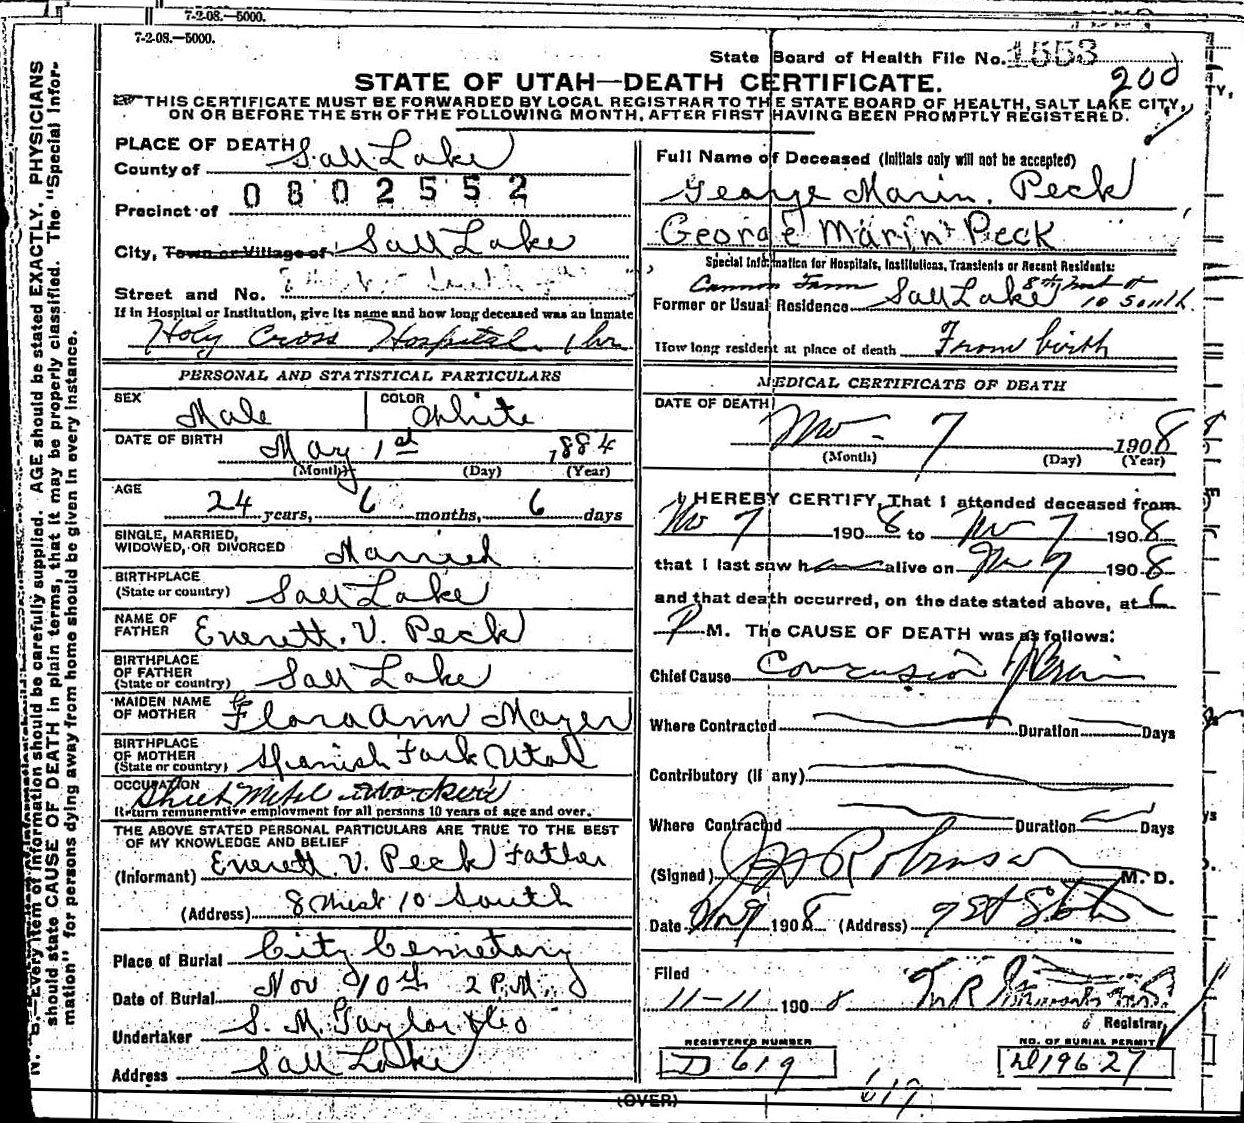 7-2-08.—5000.
7-2-08.—5000.
State Board of Health File No. 1553
200
STATE OF UTAH—DEATH CERTIFICATE.
THIS CERTIFICATE MUST BE FORWARDED BY LOCAL REGISTRAR TO THE STATE BOARD OF HEALTH, SALT LAKE CITY,
ON OR BEFORE THE 5TH OF THE FOLLOWING MONTH, AFTER FIRST HAVING BEEN PROMPTLY REGISTERED.
PLACE OF DEATH
County of Salt Lake
0802552
Precinct of
City, Town or Village of Salt Lake
Street and No.
If in Hospital or Institution, give its name and how long deceased was an inmate
Holy Cross Hospital 1 hr
PERSONAL AND STATISTICAL PARTICULARS
SEX Male COLOR White
DATE OF BIRTH May 1st 1884
(Month) (Day) (Year)
AGE 24 years, 6 months, 6 days
SINGLE, MARRIED,
WIDOWED, OR DIVORCED Married
BIRTHPLACE
(State or country) Salt Lake
NAME OF
FATHER Everett. V. Peck
BIRTHPLACE
OF FATHER
(State or country) Salt Lake
MAIDEN NAME
OF MOTHER Flora Ann Mayer
BIRTHPLACE
OF MOTHER
(State or country) Spanish Fork Utah
OCCUPATION
Sheet Metal worker
Return remunerative employment for all persons 10 years of age and over.
THE ABOVE STATED PERSONAL PARTICULARS ARE TRUE TO THE BEST
OF MY KNOWLEDGE AND BELIEF
(Informant) Everett. V. Peck Father
(Address) 8 West 10 South
Place of Burial City Cemetary
Date of Burial Nov 10th 2 P.M.
Undertaker S. M. Taylor & Co
Address Salt Lake
Full Name of Deceased (Initials only will not be accepted)
George Marin. Peck
George Marin Peck
Special Information for Hospitals, Institutions, Transients or Recent Residents:
Cannon Farm 8th West &
Former or Usual Residence Salt Lake 10 South
How long resident at place of death From birth
MEDICAL CERTIFICATE OF DEATH
DATE OF DEATH
Nov 7 1908
(Month) (Day) (Year)
I HEREBY CERTIFY, That I attended deceased from
Nov 7 1908 to Nov 7 1908
that I last saw h alive on Nov 7 1908
and that death occurred, on the date stated above, at 6
P M. The CAUSE OF DEATH was as follows:
Chief Cause Concussion of Brain
Where Contracted Duration Days
Contributory (if any)
Where Contracted Duration Days
(Signed) Robinson M. D.
Date Nov 9 1908 (Address)
Filed
11-11 1908
Registrar
REGISTERED NUMBER
D 619
NO. OF BURIAL PERMIT
D 19627
619
(OVER)
N. B.—Every item of information should be carefully supplied. AGE should be stated EXACTLY. PHYSICIANS
should state CAUSE OF DEATH in plain terms, that it may be properly classified. The "Special Infor-
mation" for persons dying away from home should be given in every instance.